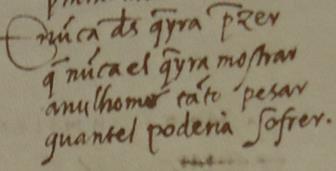 E nũca đs q̃yra p̃zer
q̃ nũca el q̃yra mostrar
a nulhome tãto pesar
quantel poderia sofrer.